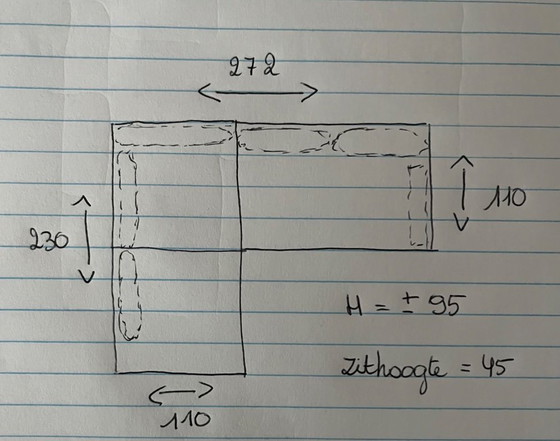 272
110
230
H = ± 95
zithoogte = 45
110